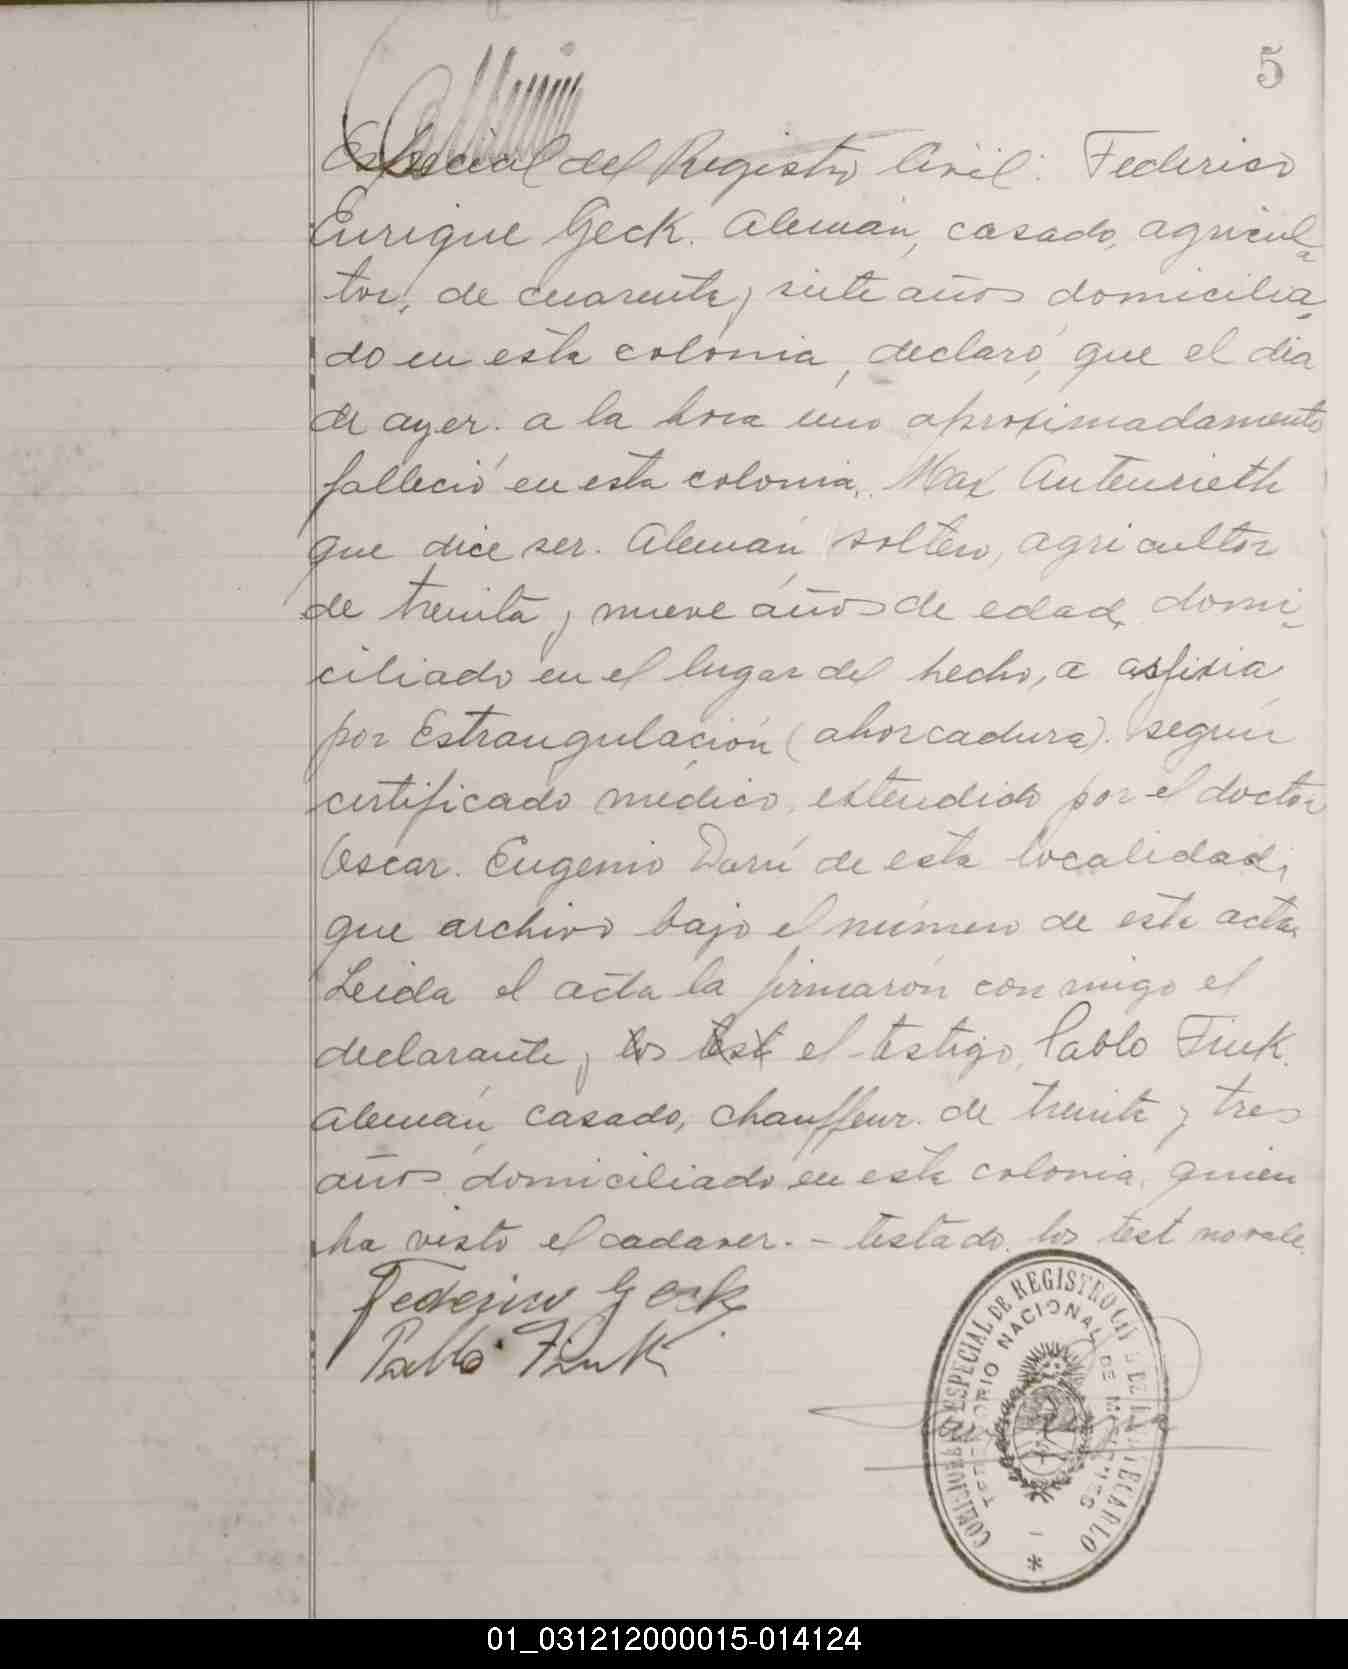 5
Especial del Registro Civil: Federico
Enrique Geck. Alemán, casado, agricul-
tor, de cuarenta y siete años domicilia-
do en esta colonia, declaró, que el dia
de ayer. a la hora uno aproximadamente
falleció en esta colonia, Max Autenrieth
que dice ser. Alemán soltero, agricultor
de treinta y nueve años de edad, domi-
ciliado en el lugar del hecho, a asfixia
por Estrangulación (ahorcadura). según
certificado médico, extendido por el doctor
Oscar. Eugenio Darú de esta localidad,
que archivo bajo el número de esta acta.
Leida el acta la firmarón conmigo el
declarante y los test el testigo, Pablo Fink.
Alemán casado, chauffeur. de treinta y tres
años, domiciliado en esta colonia, quien
ha visto el cadaver. - testado. los test no vale.
Federico Geck
Pablo Fink
ESPECIAL DE REGISTRO CIVIL DE MONTECARLO
TERRITORIO NACIONAL DE MISIONES
01_031212000015-014124